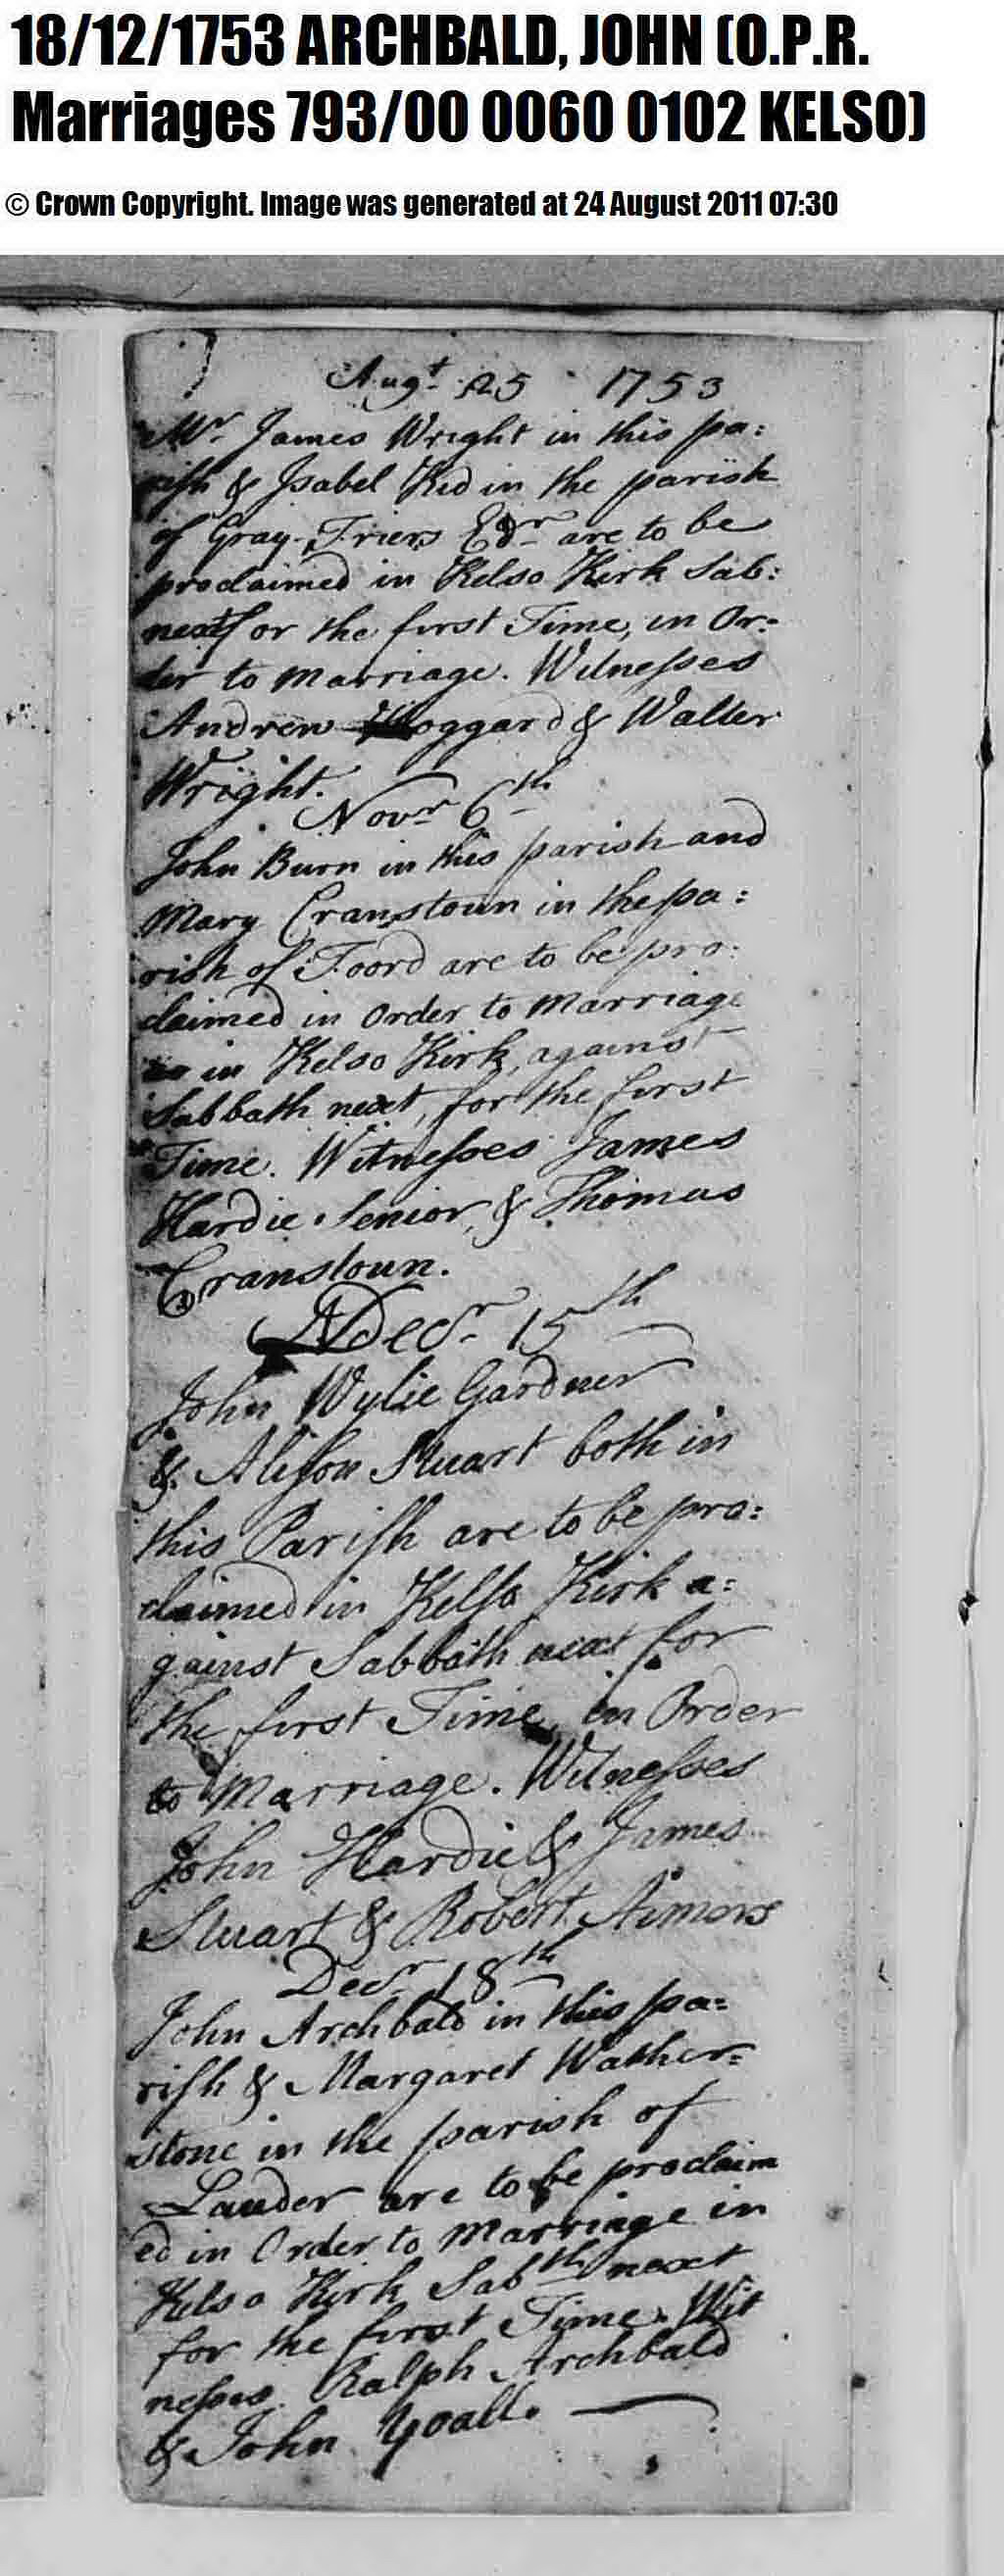 18/12/1753 ARCHBALD, JOHN (O.P.R.
Marriages 793/00 0060 0102 KELSO)
© Crown Copyright. Image was generated at 24 August 2011 07:30
Augt. 25 1753
Mr. James Wright in this pa:
rish & Isabel Kid in the parish
of Gray-Friers Edr. are to be
proclaimed in Kelso Kirk Sab:
next for the first Time, in Or:
der to marriage. Witnesses
Andrew Hoggard & Walter
Wright.
Novr. 6th
John Burn in this parish and
Mary Cranstoun in the pa:
rish of Foord are to be pro:
claimed in Order to Marriage
in Kelso Kirk, against
Sabbath next, for the first
Time. Witnesses James
Hardie Senior, & Thomas
Cranstoun.
Decr. 15th
John Wylie Gardner
& Alison Stuart both in
this Parish are to be pro:
claimed in Kelso Kirk a:
gainst Sabbath next for
the first Time, in Order
to Marriage. Witnesses
John Hardie & James
Stuart & Robert Aimers
Decr. 18th
John Archbald in this pa:
rish & Margaret Wather=
stone in the parish of
Lauder are to be proclaim
ed in Order to Marriage in
Kelso Kirk Sabth. next
for the first Time. Wit
nesses. Ralph Archbald
& John Yoall.